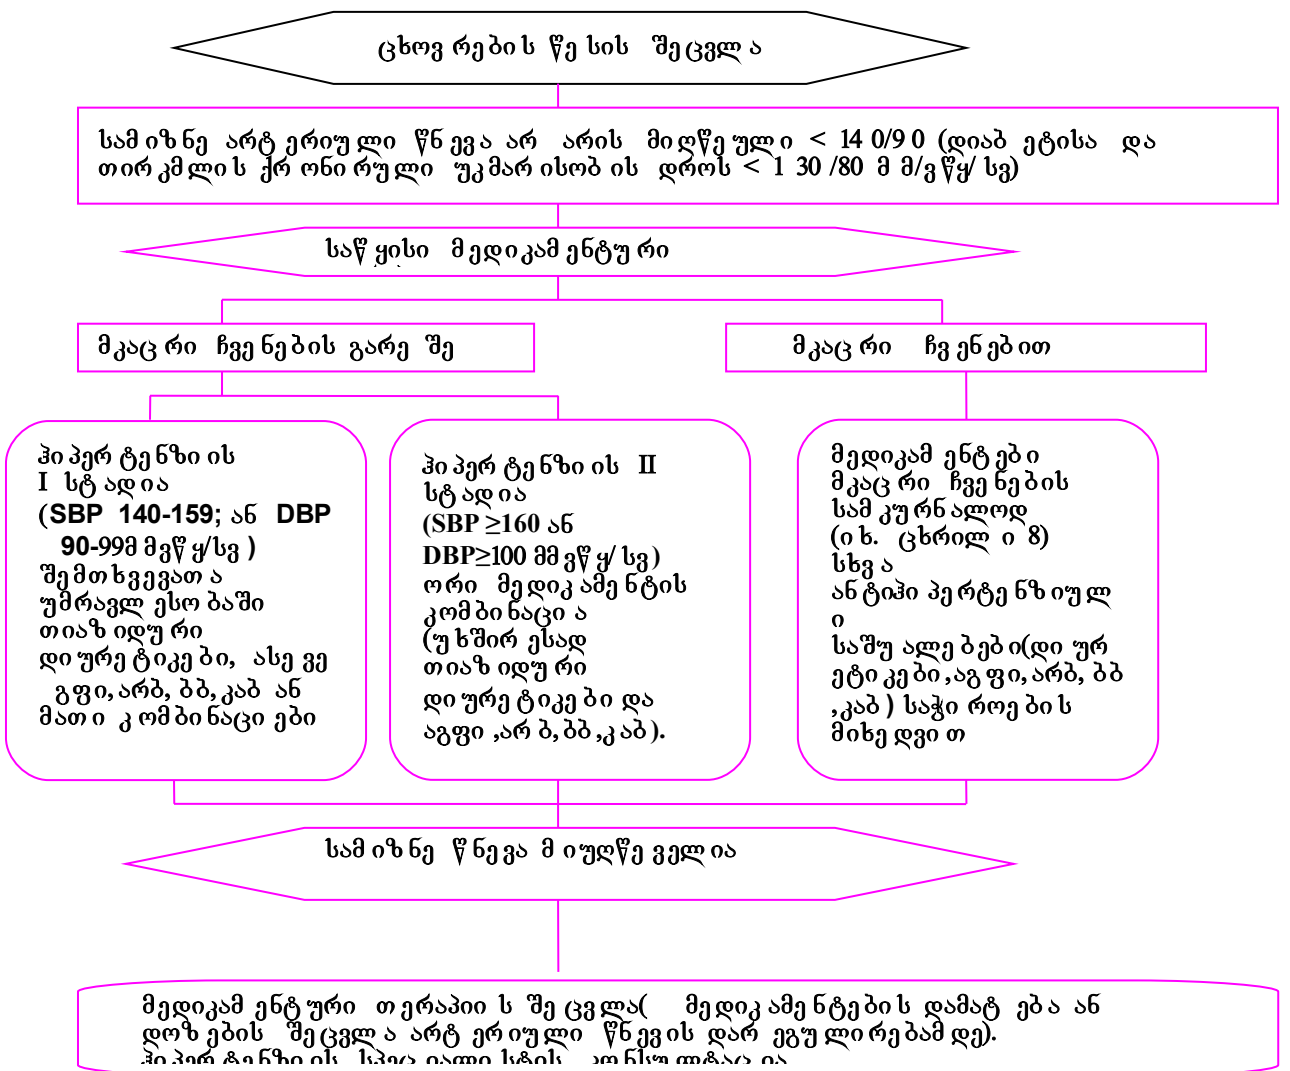 ცხოვრების წესის შეცვლა
სამიზნე არტერიული წნევა არ არის მიღწეული < 140/90 (დიაბეტისა და
თირკმლის ქრონირული უკმარისობის დროს < 130/80 მმ/ვწყ/სვ)
საწყისი მედიკამენტური
მკაცრი ჩვენების გარეშე
მკაცრი ჩვენებით
ჰიპერტენზიის
I სტადია
(SBP 140-159; ან DBP
90-99მმვწყ/სვ)
შემთხვევათა
უმრავლესობაში
თიაზიდური
დიურეტიკები, ასევე
გფი,არბ, ბბ,კაბ ან
მათი კომბინაციები
ჰიპერტენზიის II
სტადია
(SBP ≥160 ან
DBP≥100 მმვწყ/სვ)
ორი მედიკამენტის
კომბინაცია
(უხშირესად
თიაზიდური
დიურეტიკები და
აგფი,არბ,ბბ,კაბ).
მედიკამენტები
მკაცრი ჩვენების
სამკურნალოდ
(იხ. ცხრილი 8)
სხვა
ანტიჰიპერტენზიულ
ი
საშუალებები(დიურ
ეტიკები,აგფი,არბ, ბბ
,კაბ) საჭიროების
მიხედვით
სამიზნე წნევა მიუღწეველია
მედიკამენტური თერაპიის შეცვლა( მედიკამენტების დამატება ან
დოზების შეცვლა არტერიული წნევის დარეგულირებამდე).
ჰიპერტენზიის სპეციალისტის კონსულტაცია